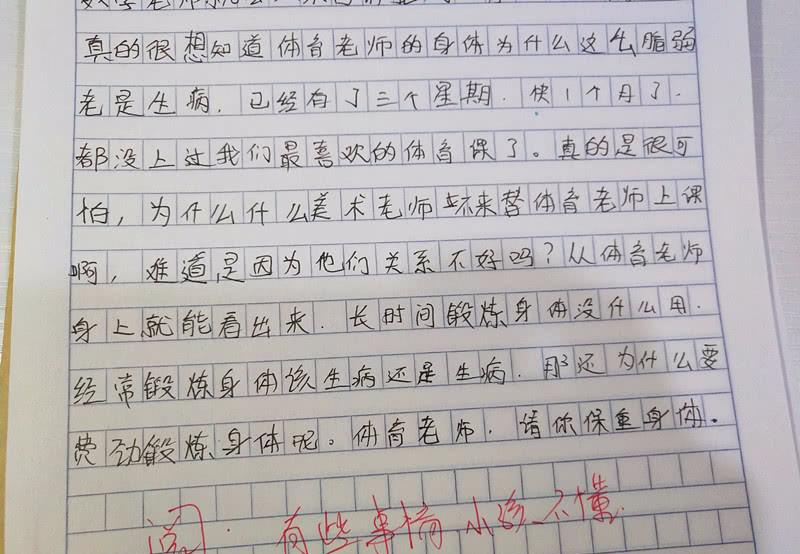 真的很想知道体育老师的身体为什么这么脂弱
老是生病.已经有了三个星期.快1个月了.
都没上过我们最喜欢的体育课了。真的是很可
怕，为什么什么美术老师坏来替体育老师上课
啊，难道是因为他们关系不好吗？从体育老师
身上就能看出来.长时间锻炼身体没什么用.
经常锻炼身体该生病还是生病.那还为什么要
费劲锻炼身体呢。体育老师.请你保重身体。
阅:有些事情小孩不懂.